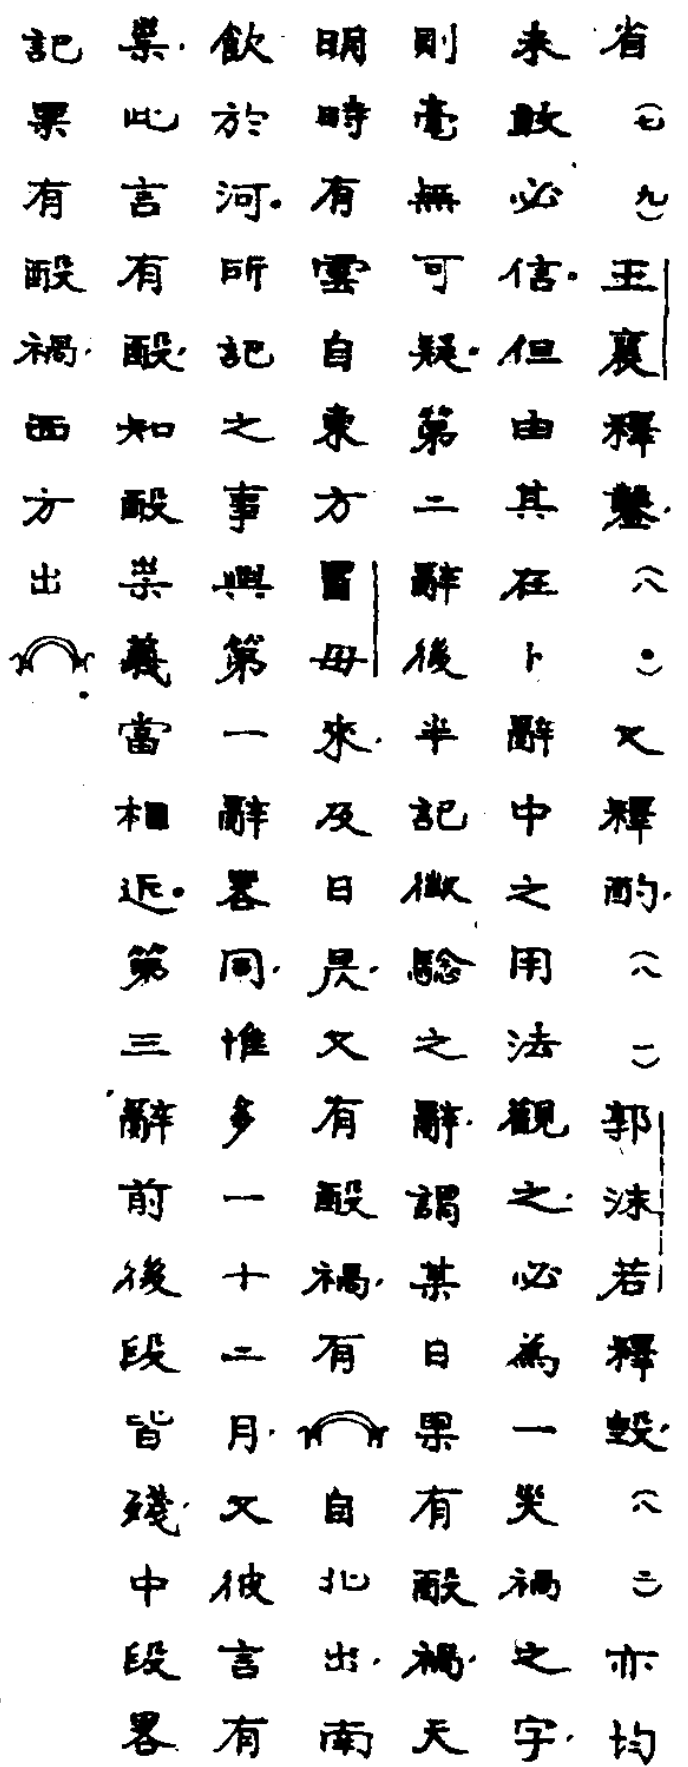 省（七九）王襄釋鑿，（八〇）又釋酌，（八一）郭沫若釋，（八二）亦均
未敢必信。但由其在卜辭中之用法觀之，必為一災禍之字，
則毫無可疑。第二辭後半記徵驗之辭，謂某日果有酘禍，天
明時有雲自東方冒母來，及日昃，又有酘禍，有自北出，南
飲於河。所記之事與第一辭畧同，惟多一十二月，又彼言有
祟，此言有酘，知酘祟義當相近。第三辭前後段皆殘，中段畧
記果有酘禍，西方出。